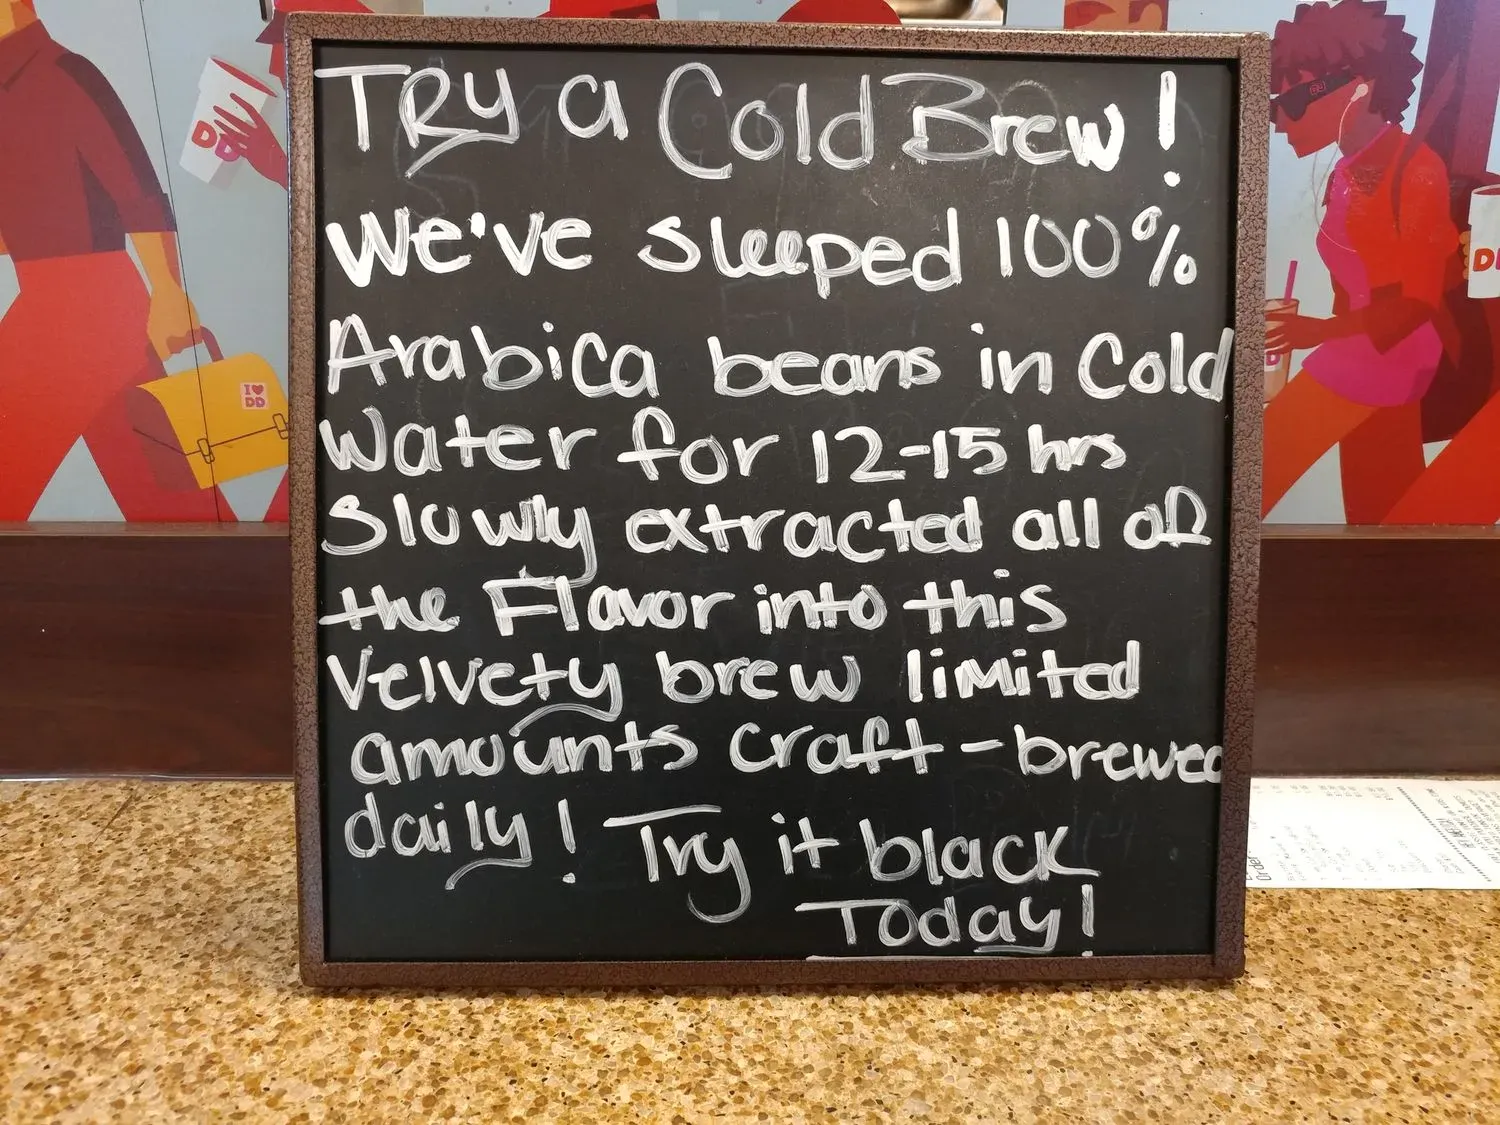 TRy a Cold Brew!
We've sleeped 100%
Arabica beans in Cold
Water for 12-15 hrs
Slowly extracted all of
the Flavor into this
Velvety brew limited
amounts craft-brewed
daily! Try it black
Today!
DD
I ♥
DD
DD
Order: